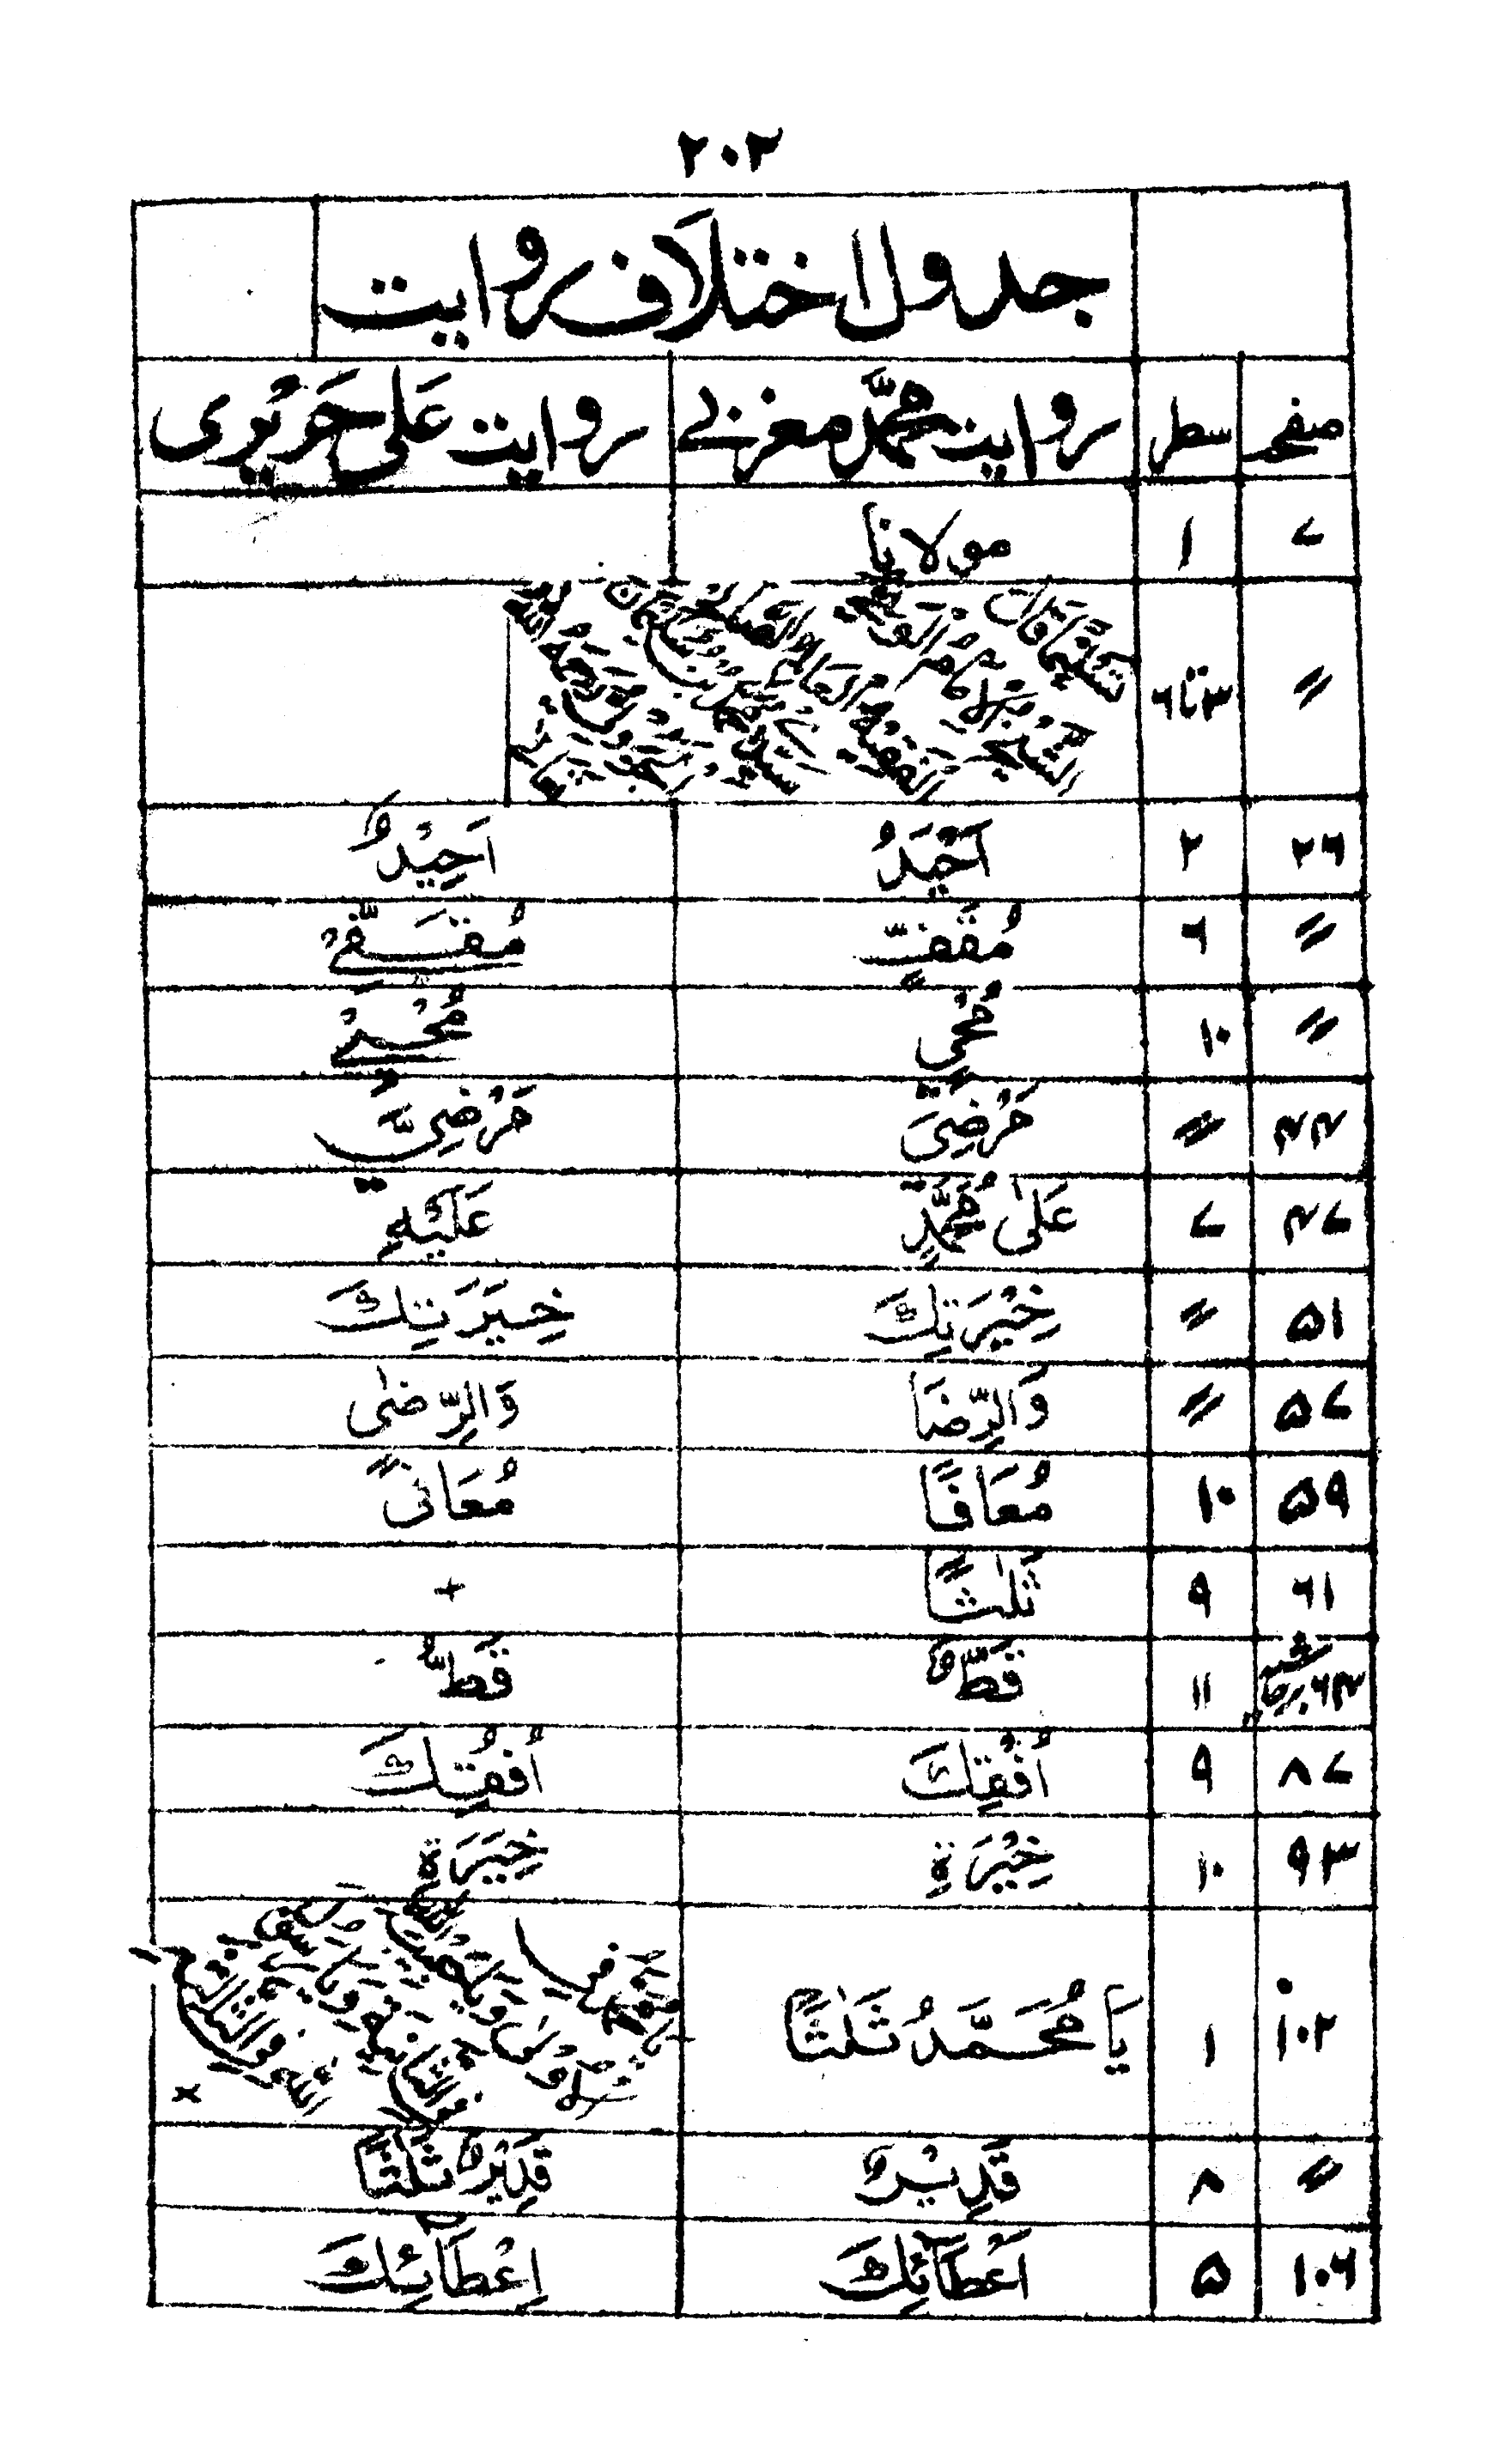 ۲۰۳
جدول اختلاف روایت
صفحہ سطر روایت محمّد مغربے روایت عَلی حَرِیْرِی
۷ ۱ مولانا
〃 ۳تا۶
۲۶ ۲ اَحْيَدُ اَحِيْدٌ
〃 ۶ مُقَفٍّ مُقَفّٰے
〃 ۱۰ مُحْيٍ مُحْيٰے
۴۴ 〃 مَرْضِيَ مَرْضِيَّ
۴۷ ۷ عَلٰى مُحَمَّدٍ عَلَيْهِ
۵۱ 〃 خِيْرَتِكَ خِيَرَتِكَ
۵۷ 〃 وَالرِّضَا وَالرِّضٰى
۵۹ ۱۰ مُعَافًا مُعَافًى
۶۱ ۹ ثَلٰثًا +
۶۴ برحاشیہ ۱۱ قَطٌّ قَطُّ
۸۷ ۹ اُفْقِكَ اُفُقِكَ
۹۳ ۱۰ خِيْرَةِ خِيَرَةِ
۱۰۲ ۱ يَا مُحَمَّدُ ثَلٰثًا
〃 ۸ قَدِيْرٌ قَدِيْرٌ ثَلٰثًا
۱۰۶ ۵ اَعْطَآئِكَ اِعْطَآئِكَ